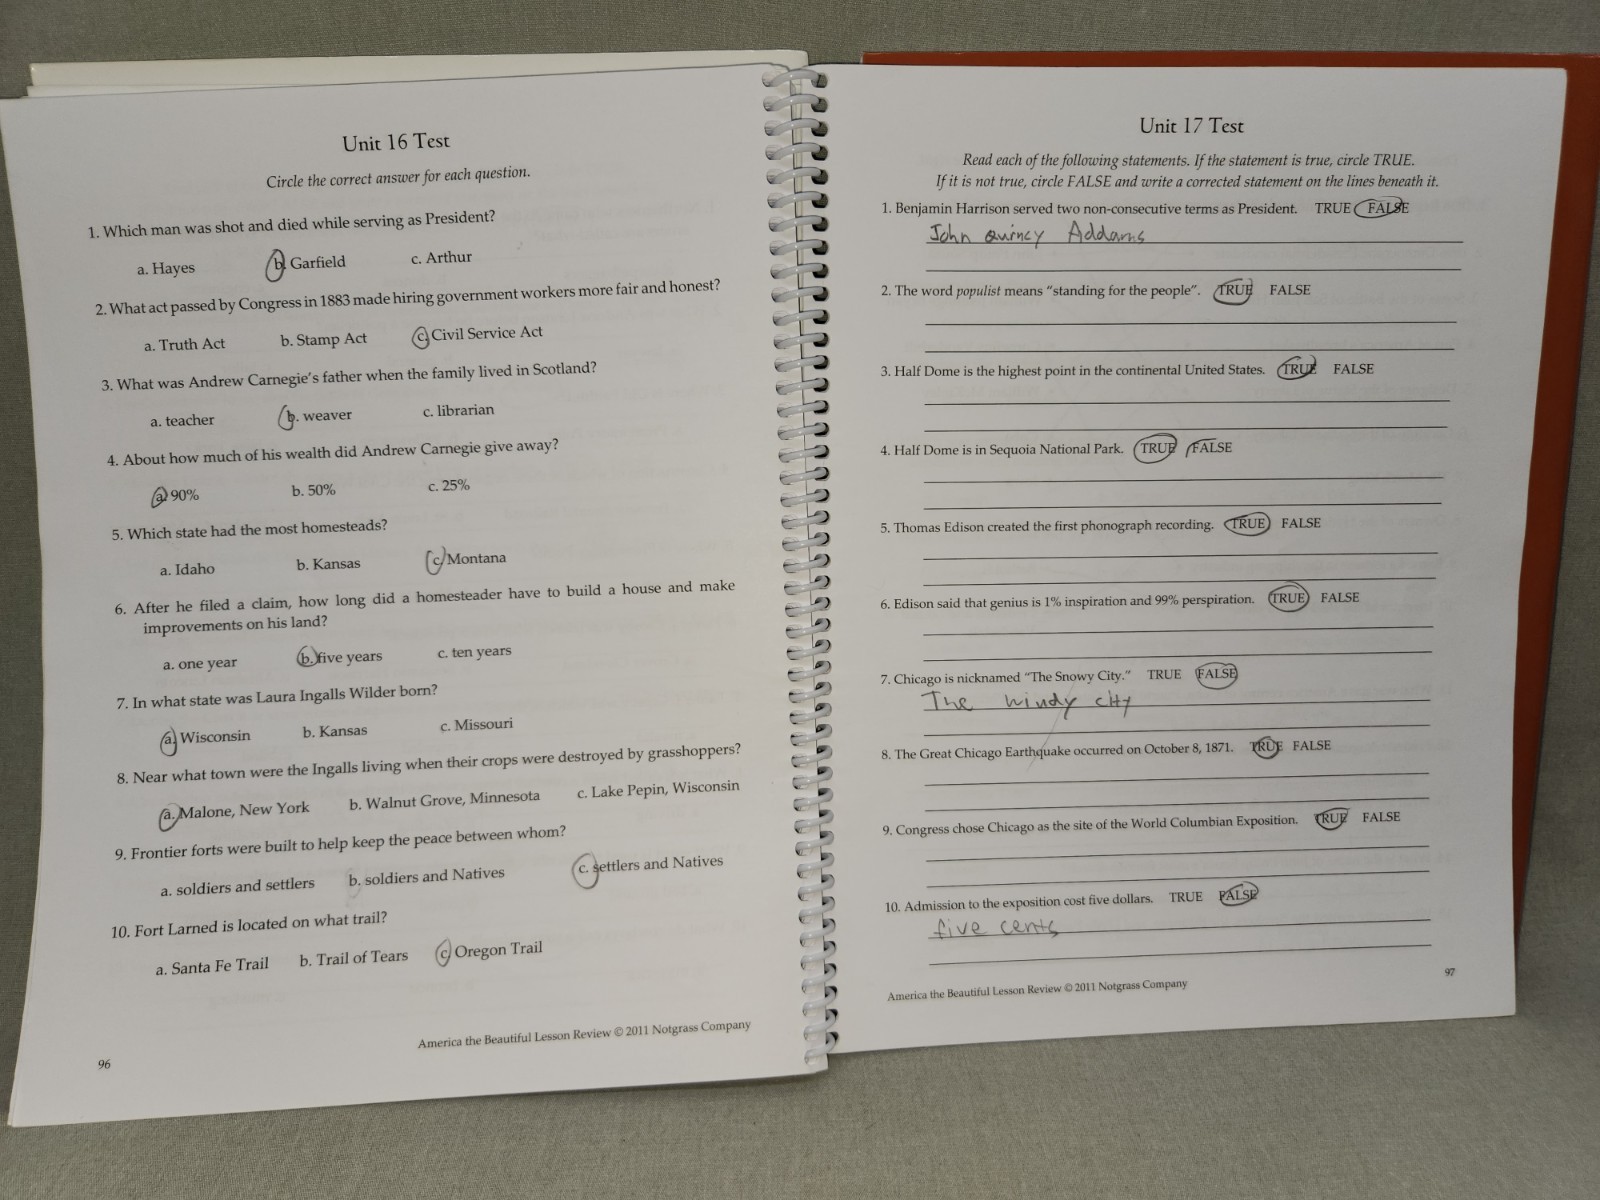 Unit 16 Test
Circle the correct answer for each question.
1. Which man was shot and died while serving as President?
a. Hayes b. Garfield c. Arthur
2. What act passed by Congress in 1883 made hiring government workers more fair and honest?
a. Truth Act b. Stamp Act c. Civil Service Act
3. What was Andrew Carnegie's father when the family lived in Scotland?
a. teacher b. weaver c. librarian
4. About how much of his wealth did Andrew Carnegie give away?
a. 90% b. 50% c. 25%
5. Which state had the most homesteads?
a. Idaho b. Kansas c. Montana
6. After he filed a claim, how long did a homesteader have to build a house and make
improvements on his land?
a. one year b. five years c. ten years
7. In what state was Laura Ingalls Wilder born?
a. Wisconsin b. Kansas c. Missouri
8. Near what town were the Ingalls living when their crops were destroyed by grasshoppers?
a. Malone, New York b. Walnut Grove, Minnesota c. Lake Pepin, Wisconsin
9. Frontier forts were built to help keep the peace between whom?
a. soldiers and settlers b. soldiers and Natives c. settlers and Natives
10. Fort Larned is located on what trail?
a. Santa Fe Trail b. Trail of Tears c. Oregon Trail
America the Beautiful Lesson Review © 2011 Notgrass Company
96
Unit 17 Test
Read each of the following statements. If the statement is true, circle TRUE.
If it is not true, circle FALSE and write a corrected statement on the lines beneath it.
1. Benjamin Harrison served two non-consecutive terms as President. TRUE FALSE
John Quincy Addams
2. The word populist means "standing for the people". TRUE FALSE
3. Half Dome is the highest point in the continental United States. TRUE FALSE
4. Half Dome is in Sequoia National Park. TRUE FALSE
5. Thomas Edison created the first phonograph recording. TRUE FALSE
6. Edison said that genius is 1% inspiration and 99% perspiration. TRUE FALSE
7. Chicago is nicknamed "The Snowy City." TRUE FALSE
The Windy City
8. The Great Chicago Earthquake occurred on October 8, 1871. TRUE FALSE
9. Congress chose Chicago as the site of the World Columbian Exposition. TRUE FALSE
10. Admission to the exposition cost five dollars. TRUE FALSE
five cents
America the Beautiful Lesson Review © 2011 Notgrass Company
97